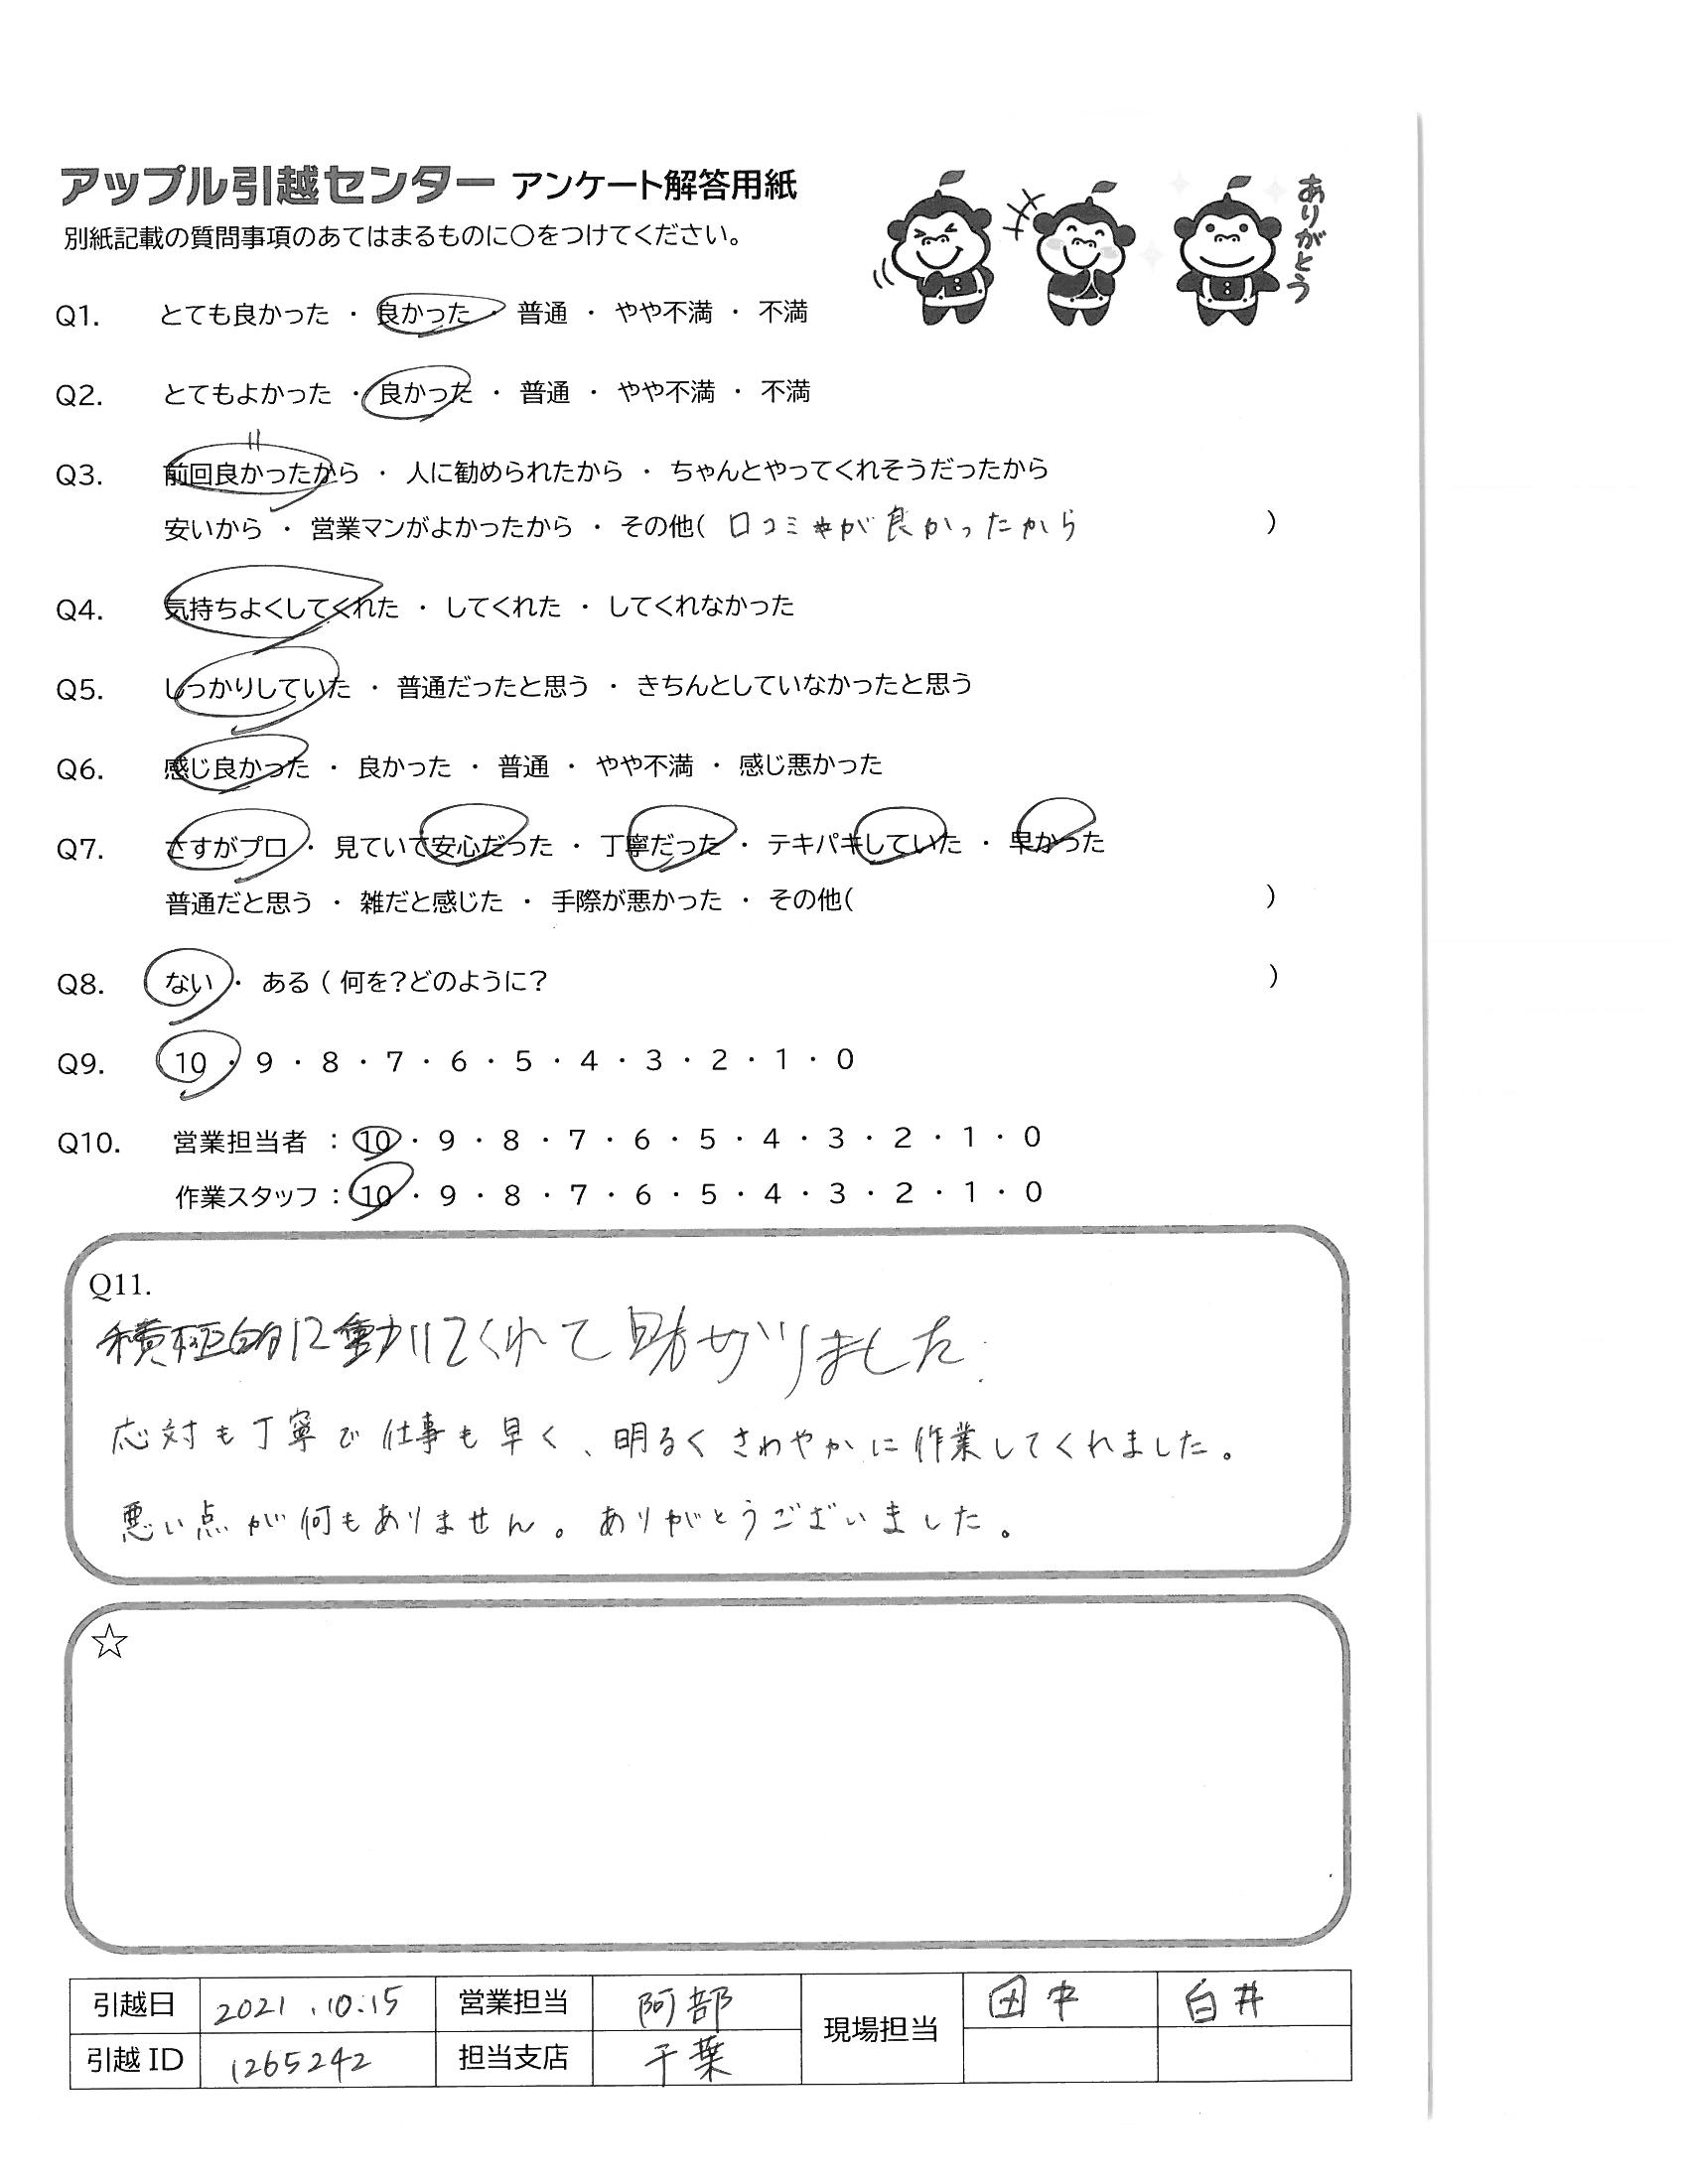 アップル引越センター アンケート解答用紙
ありがとう
別紙記載の質問事項のあてはまるものに〇をつけてください。
Q1. とても良かった ・ 良かった ・ 普通 ・ やや不満 ・ 不満
Q2. とてもよかった ・ 良かった ・ 普通 ・ やや不満 ・ 不満
Q3. 前回良かったから ・ 人に勧められたから ・ ちゃんとやってくれそうだったから
安いから ・ 営業マンがよかったから ・ その他( 口コミが良かったから )
Q4. 気持ちよくしてくれた ・ してくれた ・ してくれなかった
Q5. しっかりしていた ・ 普通だったと思う ・ きちんとしていなかったと思う
Q6. 感じ良かった ・ 良かった ・ 普通 ・ やや不満 ・ 感じ悪かった
Q7. さすがプロ ・ 見ていて安心だった ・ 丁寧だった ・ テキパキしていた ・ 早かった
普通だと思う ・ 雑だと感じた ・ 手際が悪かった ・ その他( )
Q8. ない ・ ある ( 何を?どのように? )
Q9. 10 ・ 9 ・ 8 ・ 7 ・ 6 ・ 5 ・ 4 ・ 3 ・ 2 ・ 1 ・ 0
Q10. 営業担当者 : 10 ・ 9 ・ 8 ・ 7 ・ 6 ・ 5 ・ 4 ・ 3 ・ 2 ・ 1 ・ 0
作業スタッフ : 10 ・ 9 ・ 8 ・ 7 ・ 6 ・ 5 ・ 4 ・ 3 ・ 2 ・ 1 ・ 0
Q11.
積極的に動いてくれて助かりました.
応対も丁寧で仕事も早く、明るくさわやかに作業してくれました。
悪い点が何もありません。ありがとうございました。
☆
引越日 2021.10.15 営業担当 阿部 現場担当 田中 白井
引越ID 1265242 担当支店 千葉